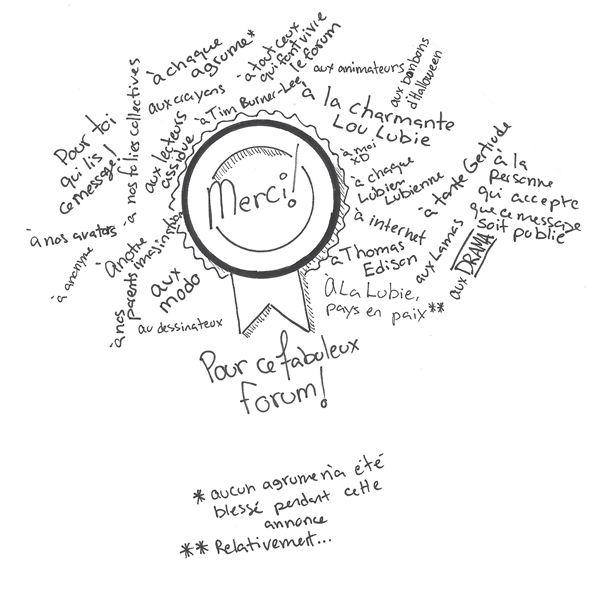 à chaque
agrume*
à tout ceux
qui font vivre
le forum
aux animateurs
aux bonbons
d'Halloween
aux crayons
à Tim Burner-Lee
à la charmante
Lou Lubie
Pour toi
qui lis
ce message!
à nos folies collectives
aux lecteurs
assidue
à moi
XD
à chaque
Lubien
Lubienne
à tante Gertrude
à la
personne
qui accepte
que ce message
soit publié
Merci!
à nos avatars
à anonyme
à notre
imagination
à internet
à Thomas
Edison
aux Lamas
aux DRAMA
à nos
parents
aux
modo
au dessinateux
À La Lubie,
pays en paix**
Pour ce fabuleux
forum!
* aucun agrume n'a été
blessé pendant cette
annonce
** Relativement...